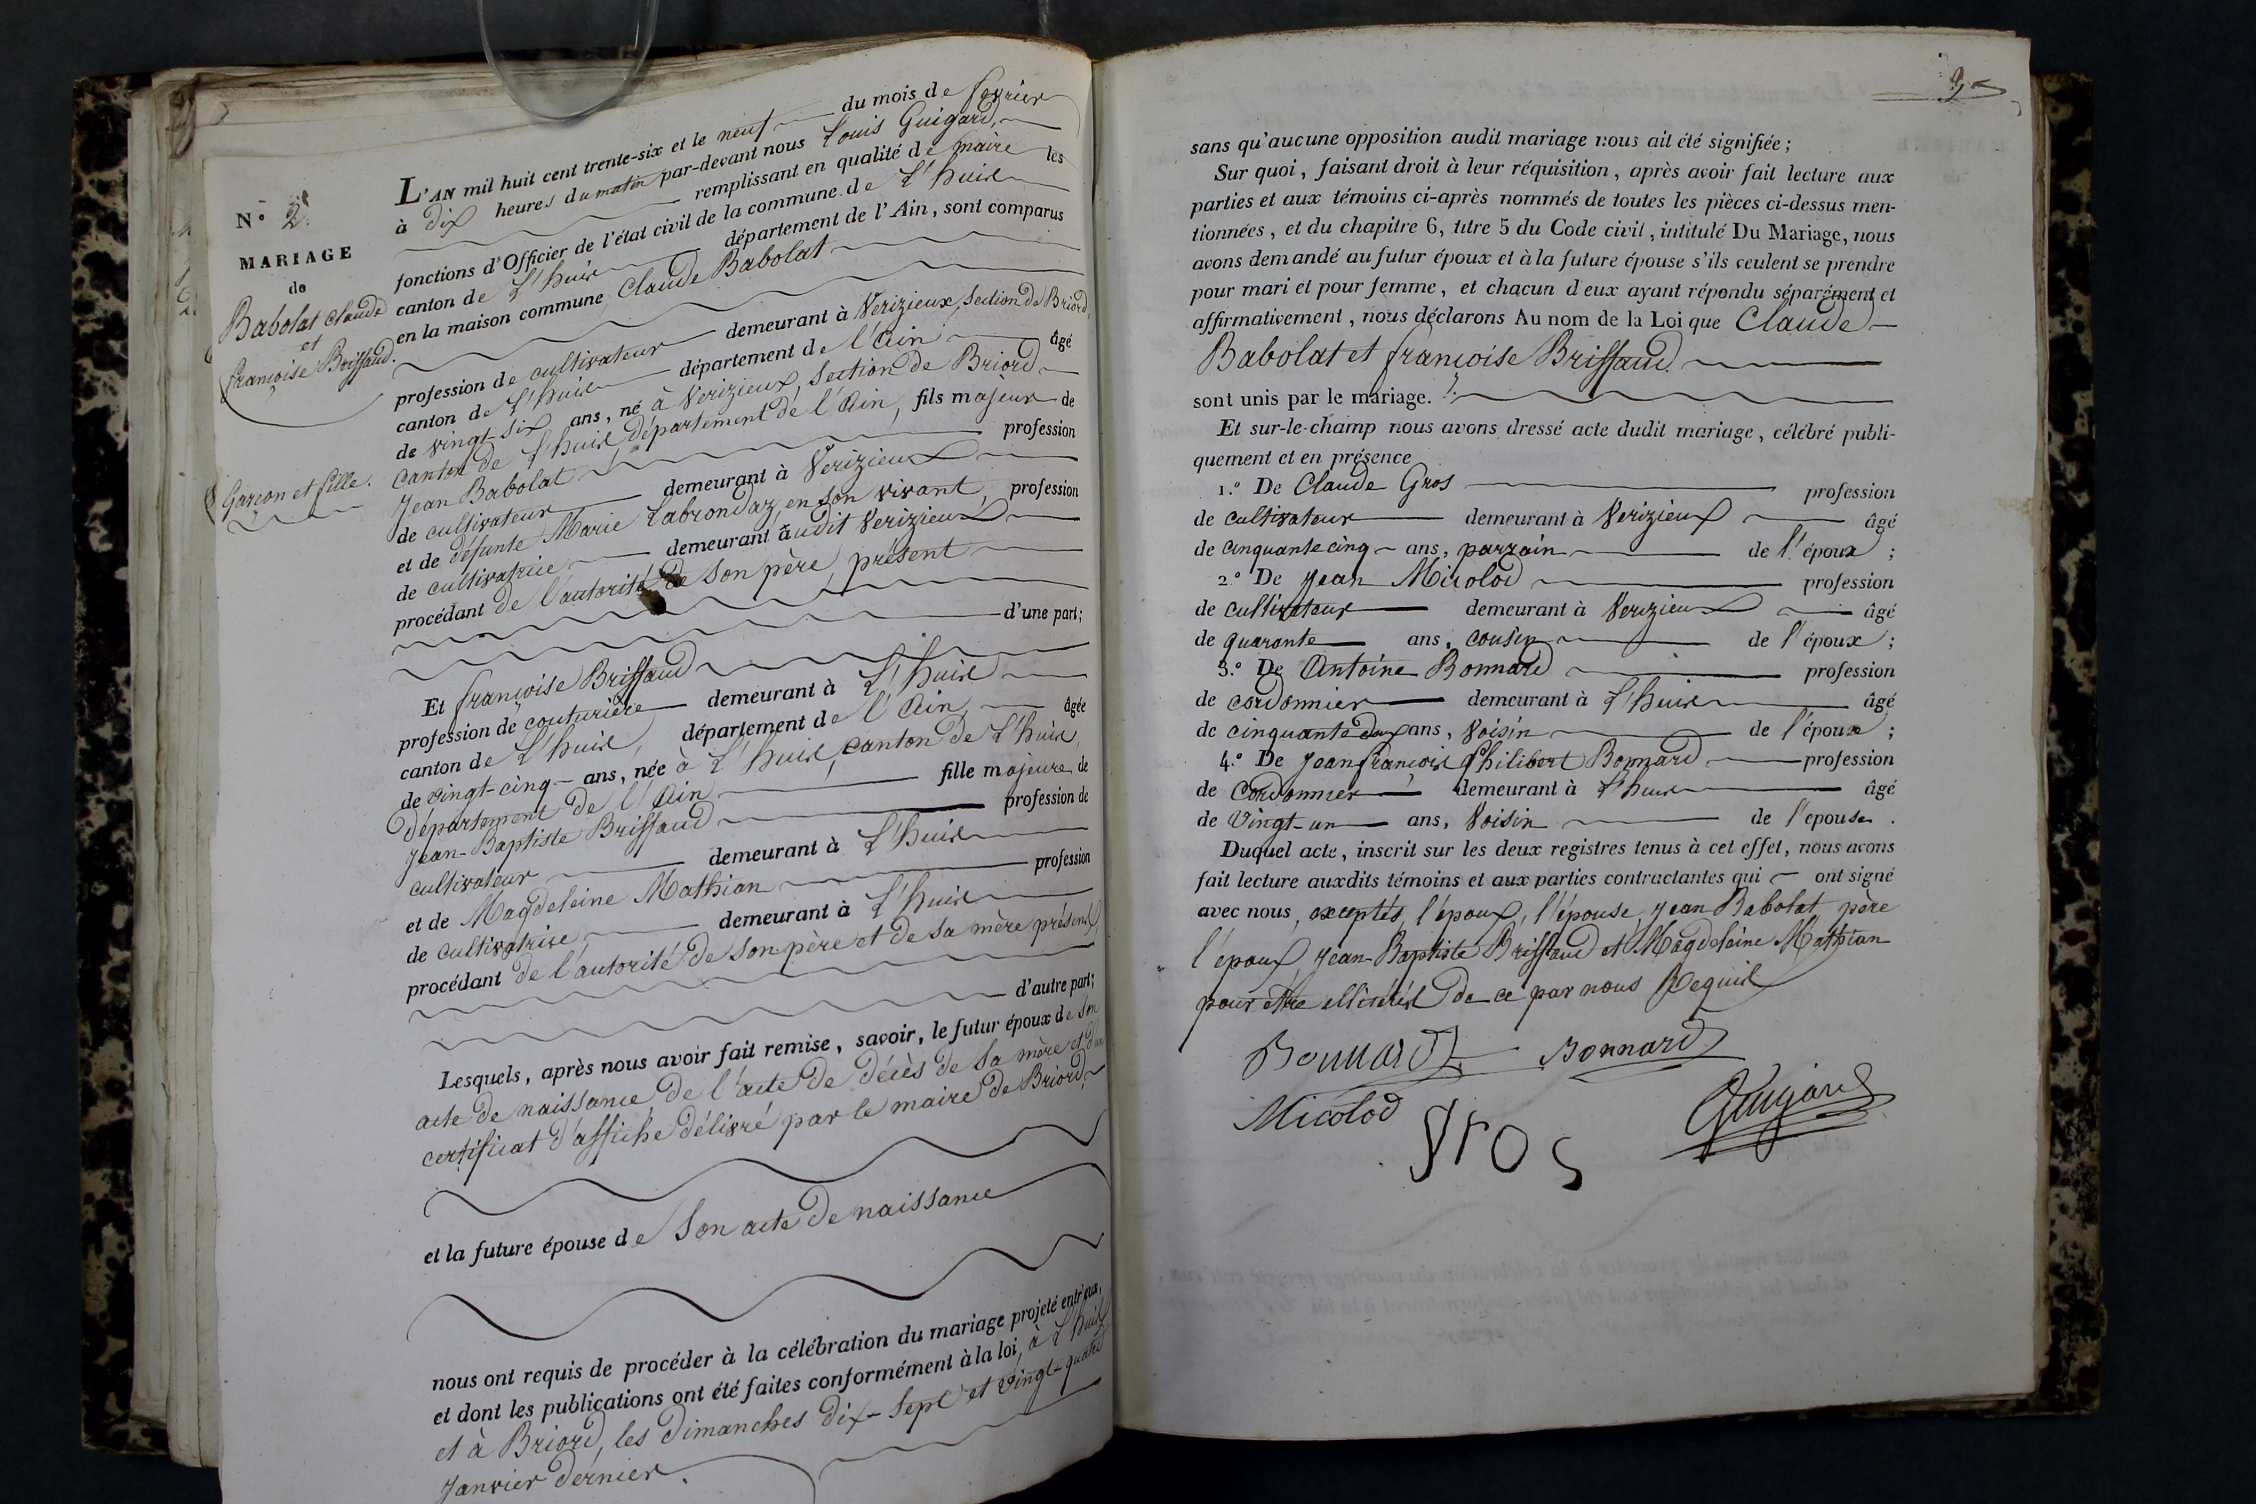 N.° 2.
MARIAGE
de
Babolat Claude
et
françoise Briffaud.
Garçon et fille.
L'AN mil huit cent trente-six et le neuf du mois de fevrier
à dix heures du matin par-devant nous Louis Guigard,
remplissant en qualité de maire les
fonctions d'Officier de l'état civil de la commune de L'huis
canton de L'huis département de l'Ain, sont comparus
en la maison commune Claude Babolat
profession de cultivateur demeurant à Verizieux, section de Briord,
canton de L'huis département de l'Ain âgé
de vingt-six ans, né à Verizieux, section de Briord
canton de L'huis, département de l'Ain, fils majeur de
Jean Babolat profession
de cultivateur demeurant à Verizieux
et de défunte Marie Labrondaz, en son vivant, profession
de cultivatrice demeurant audit Verizieux
procédant de l'autorité de son père, présent
d'une part;
Et françoise Briffaud
profession de couturière demeurant à L'huis
canton de L'huis, département de l'Ain, âgée
de vingt-cinq ans, née à L'huis, canton de L'huis,
département de l'Ain fille majeure de
Jean-Baptiste Briffaud profession de
cultivateur demeurant à L'huis
et de Magdeleine Mathian profession
de cultivatrice, demeurant à L'huis
procédant de l'autorité de son père et de sa mère présents
d'autre part;
Lesquels, après nous avoir fait remise, savoir, le futur époux de son
acte de naissance de l'acte de décès de sa mère et d'un
certificat d'affiche délivré par le maire de Briord,
et la future épouse de son acte de naissance
nous ont requis de procéder à la célébration du mariage projeté entr'eux,
et dont les publications ont été faites conformément à la loi, à L'huis
et à Briord, les dimanches dix-sept et vingt-quatre
Janvier dernier.
3
sans qu'aucune opposition audit mariage nous ait été signifiée;
Sur quoi, faisant droit à leur réquisition, après avoir fait lecture aux
parties et aux témoins ci-après nommés de toutes les pièces ci-dessus men-
tionnées, et du chapitre 6, titre 5 du Code civil, intitulé Du Mariage, nous
avons demandé au futur époux et à la future épouse s'ils veulent se prendre
pour mari et pour femme, et chacun d eux ayant répondu séparément et
affirmativement, nous déclarons Au nom de la Loi que Claude
Babolat et françoise Briffaud.
sont unis par le mariage.
Et sur-le-champ nous avons dressé acte dudit mariage, célébré publi-
quement et en présence
1.° De Claude Gros profession
de cultivateur demeurant à Verizieux âgé
de cinquante cinq ans, parrain de l'époux;
2.° De Jean Micolod profession
de cultivateur demeurant à Verizieux âgé
de quarante ans, cousin de l'époux;
3.° De Antoine Bonnard profession
de cordonnier demeurant à L'huis âgé
de cinquante deux ans, voisin de l'époux;
4.° De Jean françois Philibert Bonnard profession
de Cordonnier demeurant à L'huis âgé
de vingt-un ans, voisin de l'epouse.
Duquel acte, inscrit sur les deux registres tenus à cet effet, nous avons
fait lecture auxdits témoins et aux parties contractantes qui ont signé
avec nous, exceptés, l'époux, l'épouse, Jean Babolat, père
l'époux, Jean-Baptiste Briffaud et Magdeleine Mathian
pour être illitérés de ce par nous Requis
Bonnard Bonnard
Micolod gros Guigard